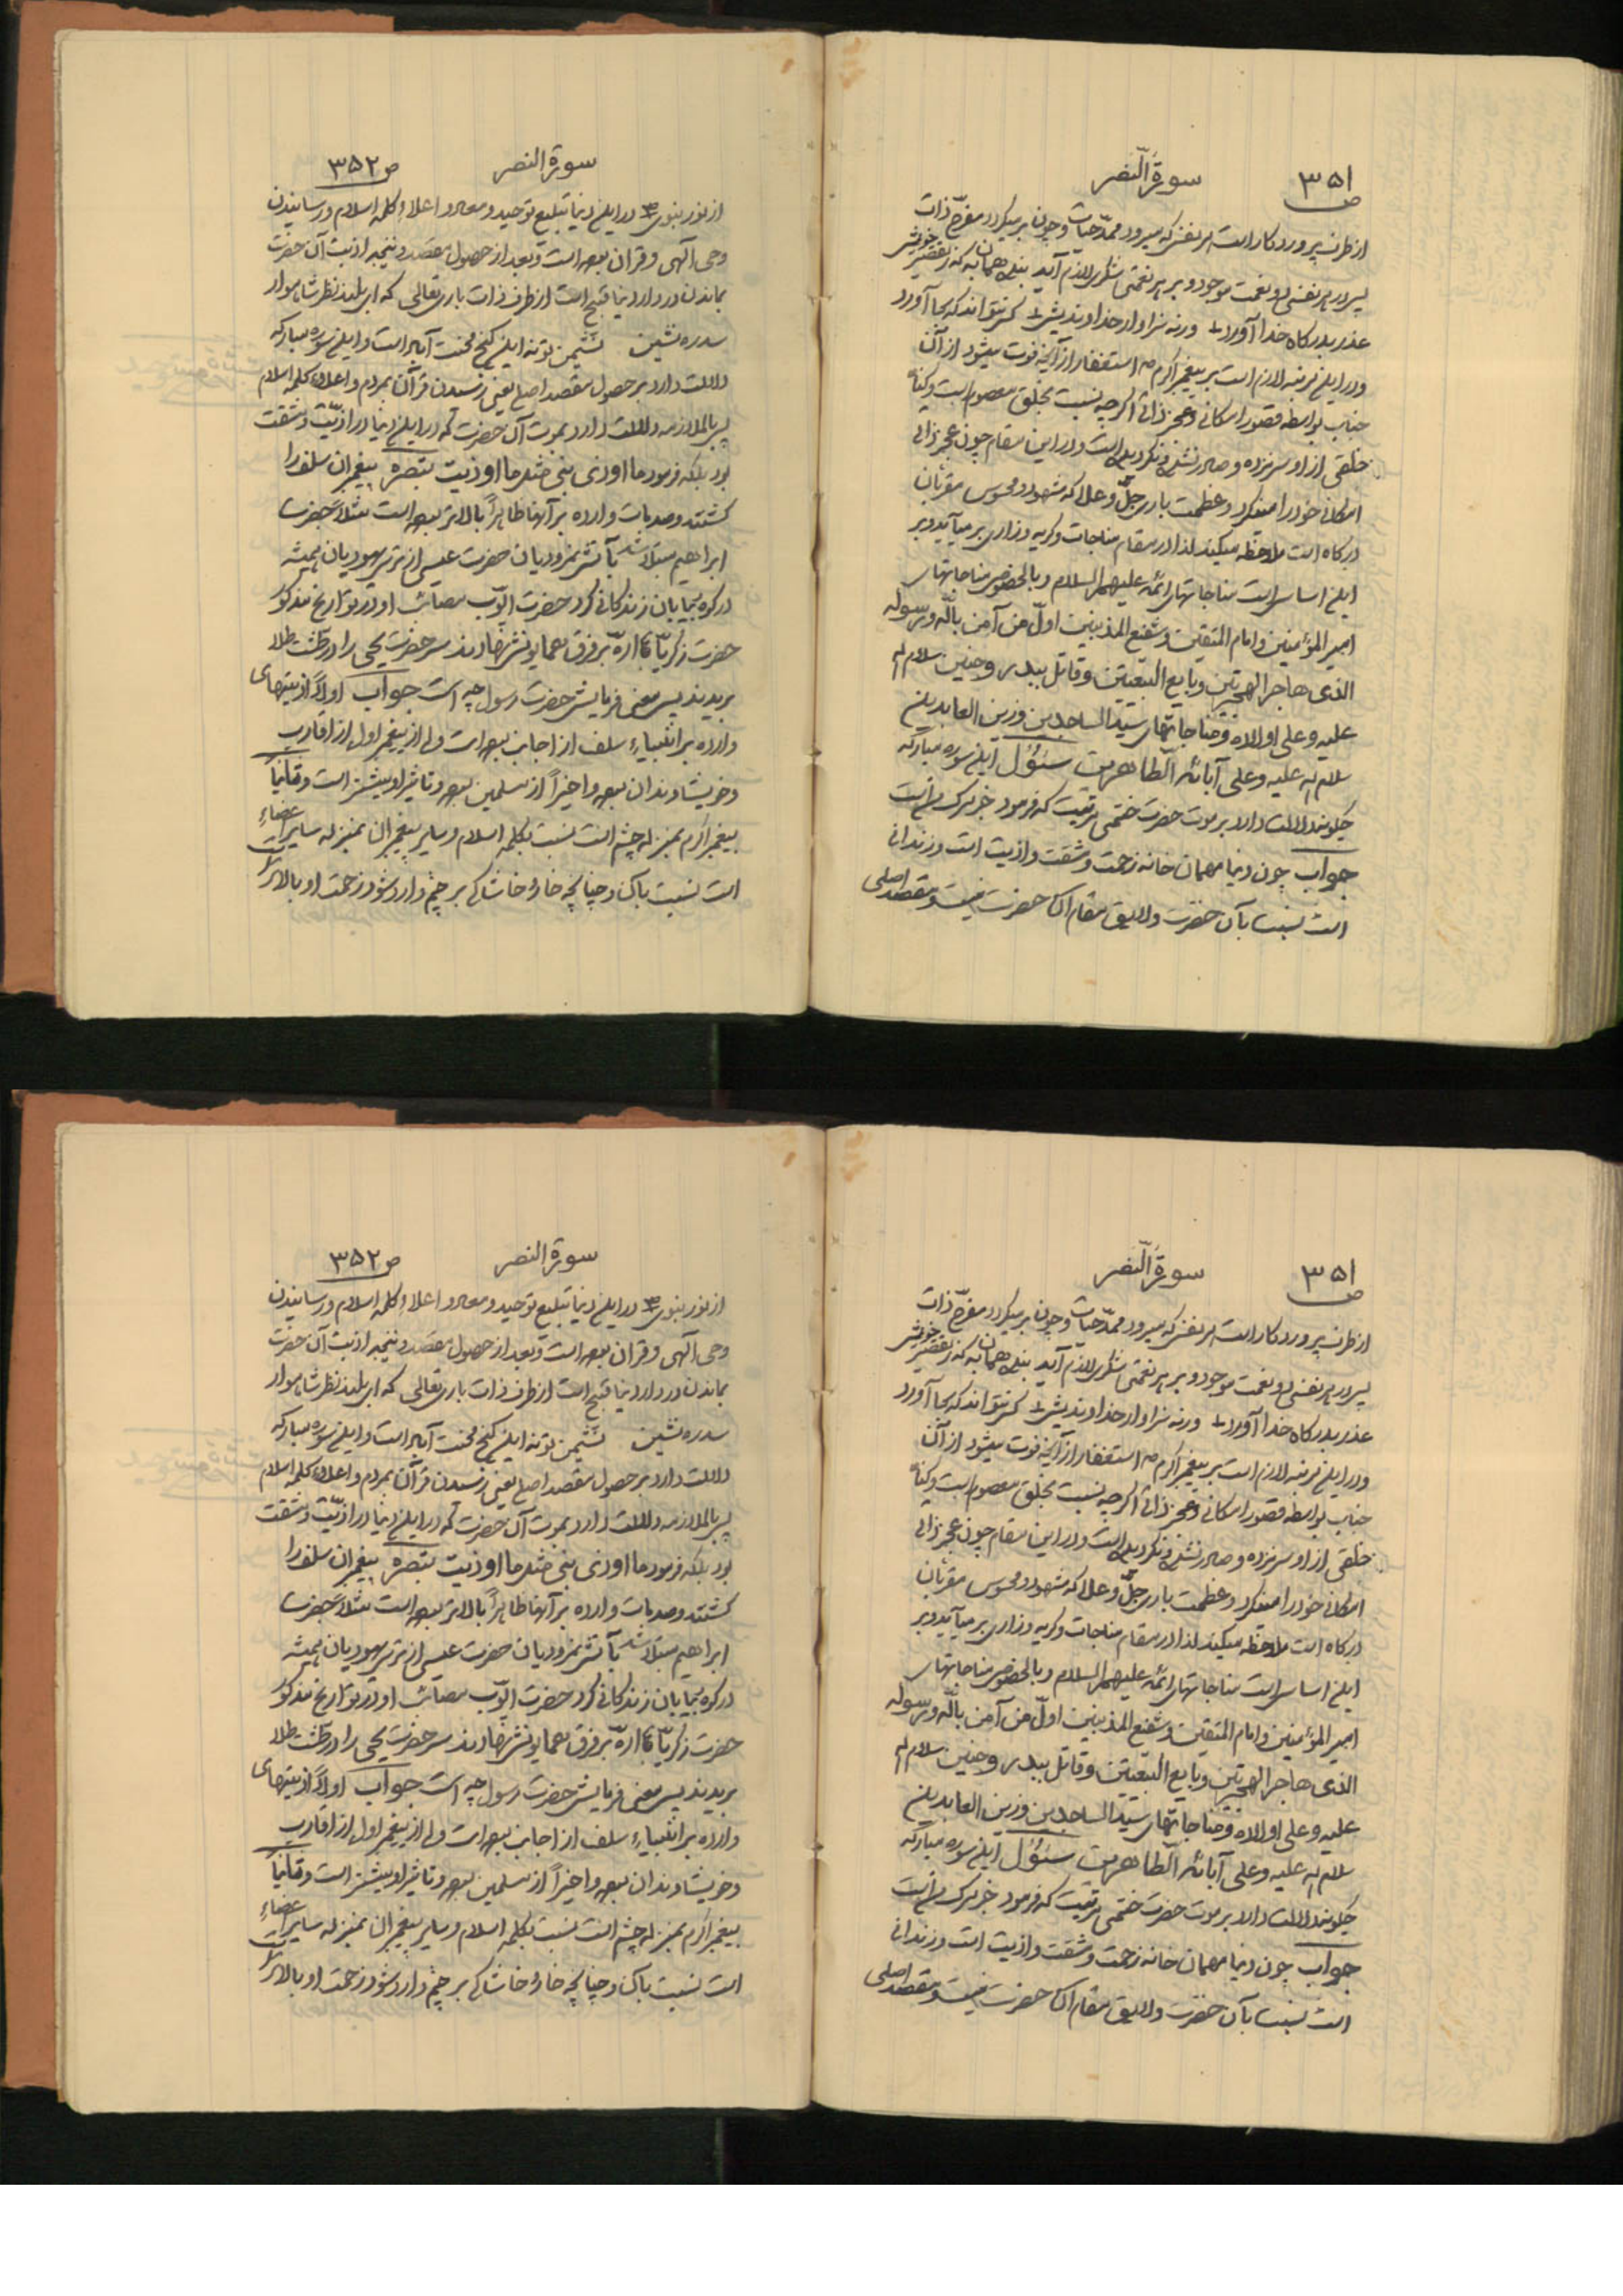 ص ۳۵۱
سورة النّصر
از طرف پروردگار است هر نفسی که میرود ممدّ حیات و چون بر میگردد مفرّح ذات
پس در هر نفسی دو نعمت موجود و بر هر نعمتی شکری لازم آید بنده همان به که ز تقصیر خویش
عذر بدرگاه خدا آورد ورنه سزاوار خداوندیش کس نتواند که بجا آورد
و در این مرتبه لازم است بر پیغمبر اکرم ص استغفار از آنچه فوت میشود از آن
جناب بواسطه قصور امکانی و عجز ذاتی اگرچه نسبت بخلق معصوم است و گناه
خلقی از او سر نزده و صادر نشده و نکرده است و در این مقام چون عجز ذاتی
امکانی خود را میکرد و عظمت باری جلّ و علا که مشهود و محسوس مقربان
درگاه است ملاحظه میکند لذا در مقام مناجات و گریه و زاری بر میآید و بر
این اساس است مناجاتهای ائمّه علیهم السلام و بالخصوص مناجاتهای
امیر المؤمنین و امام المتقین و شفیع المذنبین اوّل من آمن باللّه و برسوله
الذی هاجر الهجرتین و بایع البیعتین و قاتل ببدر و حنین سلام اله
علیه و علی اولاده و مناجاتهای سیّد الساجدین و زین العابدین
سلام اله علیه و علی آبائه الطّاهرین سئوال این سوره مبارکه
چگونه دلالت دارد بر موت حضرت ختمی مرتبت که فرمود خبر مرگ من است
جواب چون دنیا مهمان خانه زحمت و مشقت و اذیت است و زندانی
است نسبت بآن حضرت و لایق مقام آن حضرت نیست و مقصد اصلی
سورة النصر
ص ۳۵۲
از نور نبوی ص در این دنیا تبلیغ توحید و معاد و اعلاء کلمه اسلام و رسانیدن
وحی آلهی و قرآن بوده است و بعد از حصول مقصد و نتیجه اذیت آن حضرت
بماندن در دار دنیا قبیح است از طرف ذات باری تعالی که ای بلند نظر شاهوار
سدره نشین نشیمن تو نه این کنج محنت آباد است و این سوره مبارکه
دلالت دارد بر حصول مقصد اصلی یعنی رسیدن قرآن بمردم و اعلاء کلمه اسلام
پس بالملازمه دلالت دارد بموت آن حضرت که در این دنیا در اذیّت و مشقت
بود بلکه فرمود ما اوذی نبی مثل ما اوذیت تبصره پیغمبران سلف را
کشتند و صدمات وارده بر آنها ظاهراً بالاتر بوده است مثلا حضرت
ابراهیم مبتلا شد بآتش نمرودیان حضرت عیسی از ترس یهودیان همیشه
در کوه و بیابان زندگانی کرد حضرت ایّوب مصائب او در تواریخ مذکور
حضرت زکریّا با ارّه بر فرق همایونش نهادند سر حضرت یحیی را در طشت طلا
بریدند پس معنی فرمایش حضرت رسول چه است جواب اولاً اذیتهای
وارده بر انبیاء سلف از اجانب بوده است ولی از پیغمبر اول از اقارب
و خویشاوندان بوده و اخیراً از مسلمین بوده و تاثیر او بیشتر است و ثانیاً
پیغمبر اکرم بمنزله چشم است نسبت بکلمه اسلام و سایر پیغمبران بمنزله سایر اعضاء
است نسبت بآن و چنانچه خار و خاشاکی بر چشم وارد شود زحمت او بالاتر است
ص ۳۵۱
سورة النّصر
از طرف پروردگار است هر نفسی که میرود ممدّ حیات و چون بر میگردد مفرّح ذات
پس در هر نفسی دو نعمت موجود و بر هر نعمتی شکری لازم آید بنده همان به که ز تقصیر خویش
عذر بدرگاه خدا آورد ورنه سزاوار خداوندیش کس نتواند که بجا آورد
و در این مرتبه لازم است بر پیغمبر اکرم ص استغفار از آنچه فوت میشود از آن
جناب بواسطه قصور امکانی و عجز ذاتی اگرچه نسبت بخلق معصوم است و گناه
خلقی از او سر نزده و صادر نشده و نکرده است و در این مقام چون عجز ذاتی
امکانی خود را میکرد و عظمت باری جلّ و علا که مشهود و محسوس مقربان
درگاه است ملاحظه میکند لذا در مقام مناجات و گریه و زاری بر میآید و بر
این اساس است مناجاتهای ائمّه علیهم السلام و بالخصوص مناجاتهای
امیر المؤمنین و امام المتقین و شفیع المذنبین اوّل من آمن باللّه و برسوله
الذی هاجر الهجرتین و بایع البیعتین و قاتل ببدر و حنین سلام اله
علیه و علی اولاده و مناجاتهای سیّد الساجدین و زین العابدین
سلام اله علیه و علی آبائه الطّاهرین سئوال این سوره مبارکه
چگونه دلالت دارد بر موت حضرت ختمی مرتبت که فرمود خبر مرگ من است
جواب چون دنیا مهمان خانه زحمت و مشقت و اذیت است و زندانی
است نسبت بآن حضرت و لایق مقام آن حضرت نیست و مقصد اصلی
سورة النصر
ص ۳۵۲
از نور نبوی ص در این دنیا تبلیغ توحید و معاد و اعلاء کلمه اسلام و رسانیدن
وحی آلهی و قرآن بوده است و بعد از حصول مقصد و نتیجه اذیت آن حضرت
بماندن در دار دنیا قبیح است از طرف ذات باری تعالی که ای بلند نظر شاهوار
سدره نشین نشیمن تو نه این کنج محنت آباد است و این سوره مبارکه
دلالت دارد بر حصول مقصد اصلی یعنی رسیدن قرآن بمردم و اعلاء کلمه اسلام
پس بالملازمه دلالت دارد بموت آن حضرت که در این دنیا در اذیّت و مشقت
بود بلکه فرمود ما اوذی نبی مثل ما اوذیت تبصره پیغمبران سلف را
کشتند و صدمات وارده بر آنها ظاهراً بالاتر بوده است مثلا حضرت
ابراهیم مبتلا شد بآتش نمرودیان حضرت عیسی از ترس یهودیان همیشه
در کوه و بیابان زندگانی کرد حضرت ایّوب مصائب او در تواریخ مذکور
حضرت زکریّا با ارّه بر فرق همایونش نهادند سر حضرت یحیی را در طشت طلا
بریدند پس معنی فرمایش حضرت رسول چه است جواب اولاً اذیتهای
وارده بر انبیاء سلف از اجانب بوده است ولی از پیغمبر اول از اقارب
و خویشاوندان بوده و اخیراً از مسلمین بوده و تاثیر او بیشتر است و ثانیاً
پیغمبر اکرم بمنزله چشم است نسبت بکلمه اسلام و سایر پیغمبران بمنزله سایر اعضاء
است نسبت بآن و چنانچه خار و خاشاکی بر چشم وارد شود زحمت او بالاتر است